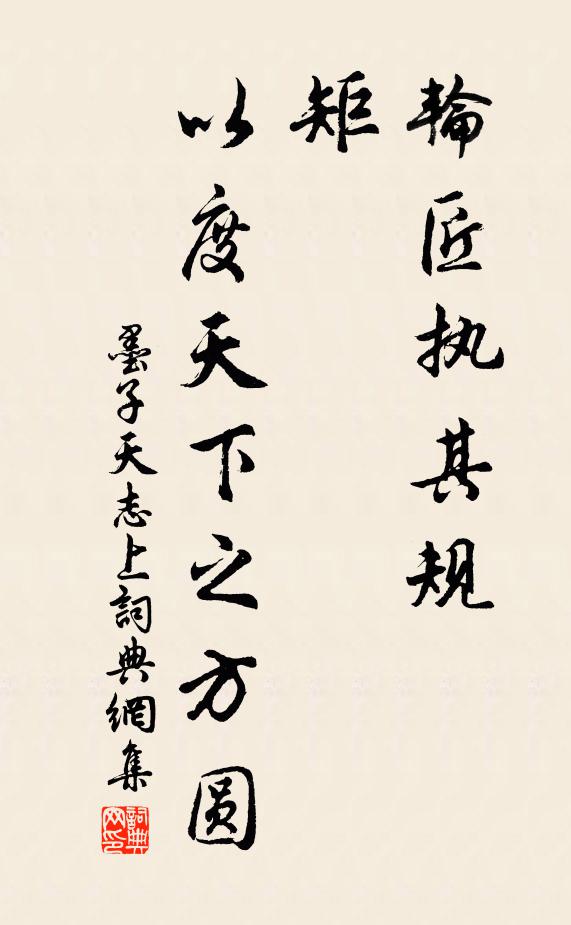 輪匠执其規
矩
以度天下之方圓
墨子天志上詞典網集
詞典
网印